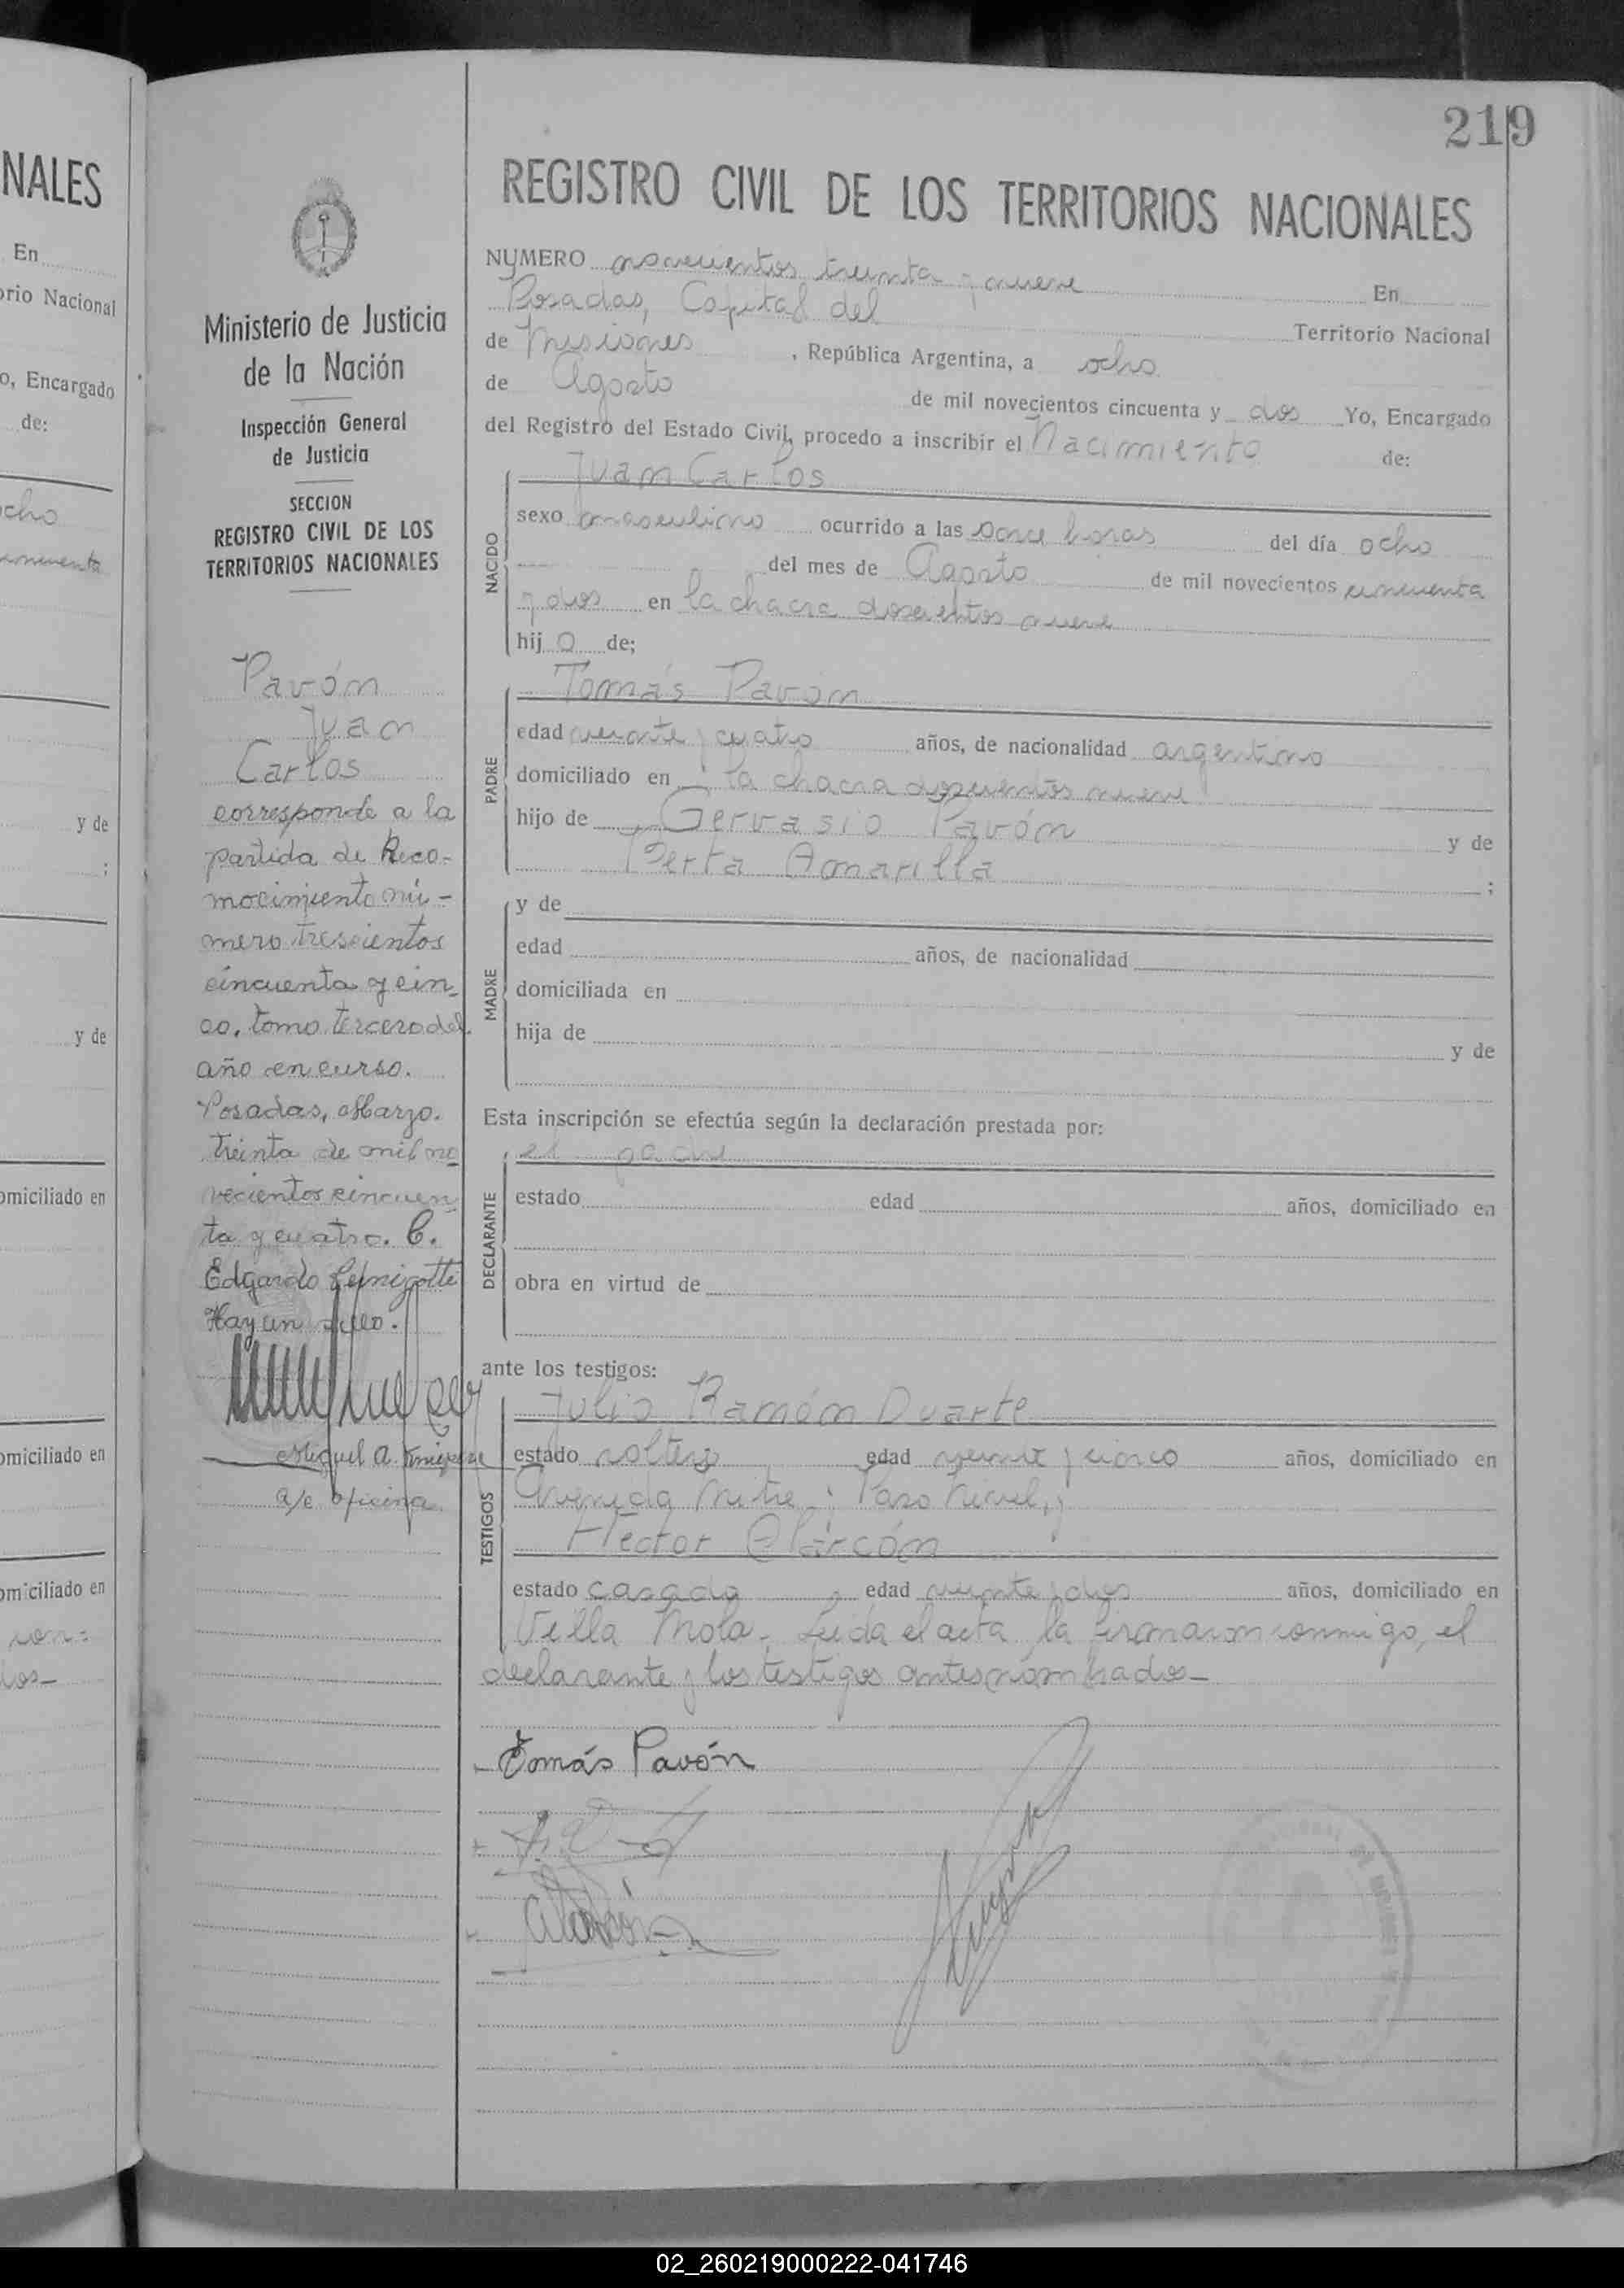 219
NALES
En
orio Nacional
o, Encargado
de:
cho
y de
;
y de
omiciliado en
omiciliado en
omiciliado en
Ministerio de Justicia
de la Nación
Inspección General
de Justicia
SECCION
REGISTRO CIVIL DE LOS
TERRITORIOS NACIONALES
Pavón
Juan
Carlos
corresponde a la
partida de Reco-
nocimiento nú-
mero trescientos
cincuenta y cin-
co, tomo tercero del
año en curso.
Posadas, Marzo
treinta de mil no
vecientos cincuen
ta y cuatro. C.
Edgardo
Hay un sello.
Miguel A.
a/c oficina
REGISTRO CIVIL DE LOS TERRITORIOS NACIONALES
NUMERO novecientos treinta y nueve En
Posadas, Capital del Territorio Nacional
de Misiones , República Argentina, a ocho
de Agosto de mil novecientos cincuenta y dos Yo, Encargado
del Registro del Estado Civil, procedo a inscribir el Nacimiento de:
NACIDO
Juan Carlos
sexo masculino ocurrido a las once horas del día ocho
del mes de Agosto de mil novecientos cincuenta
y dos en la chacra doscientos nueve
hij o de;
PADRE
Tomás Pavón
edad veinte y cuatro años, de nacionalidad argentino
domiciliado en la chacra doscientos nueve
hijo de Gervasio Pavón y de
Berta Amarilla ;
MADRE
y de
edad años, de nacionalidad
domiciliada en
hija de y de
Esta inscripción se efectúa según la declaración prestada por:
DECLARANTE
el padre
estado edad años, domiciliado en
obra en virtud de
ante los testigos:
TESTIGOS
Julio Ramón Duarte
estado soltero edad veinte y cinco años, domiciliado en
Avenida Mitre y Paso Nivel, y
Hector Alarcón
estado casado edad veinte y dos años, domiciliado en
Villa Mola. Leida el acta la firmaron conmigo, el
declarante y los testigos antes nombrados-
Tomás Pavón
Alarcón
02_260219000222-041746